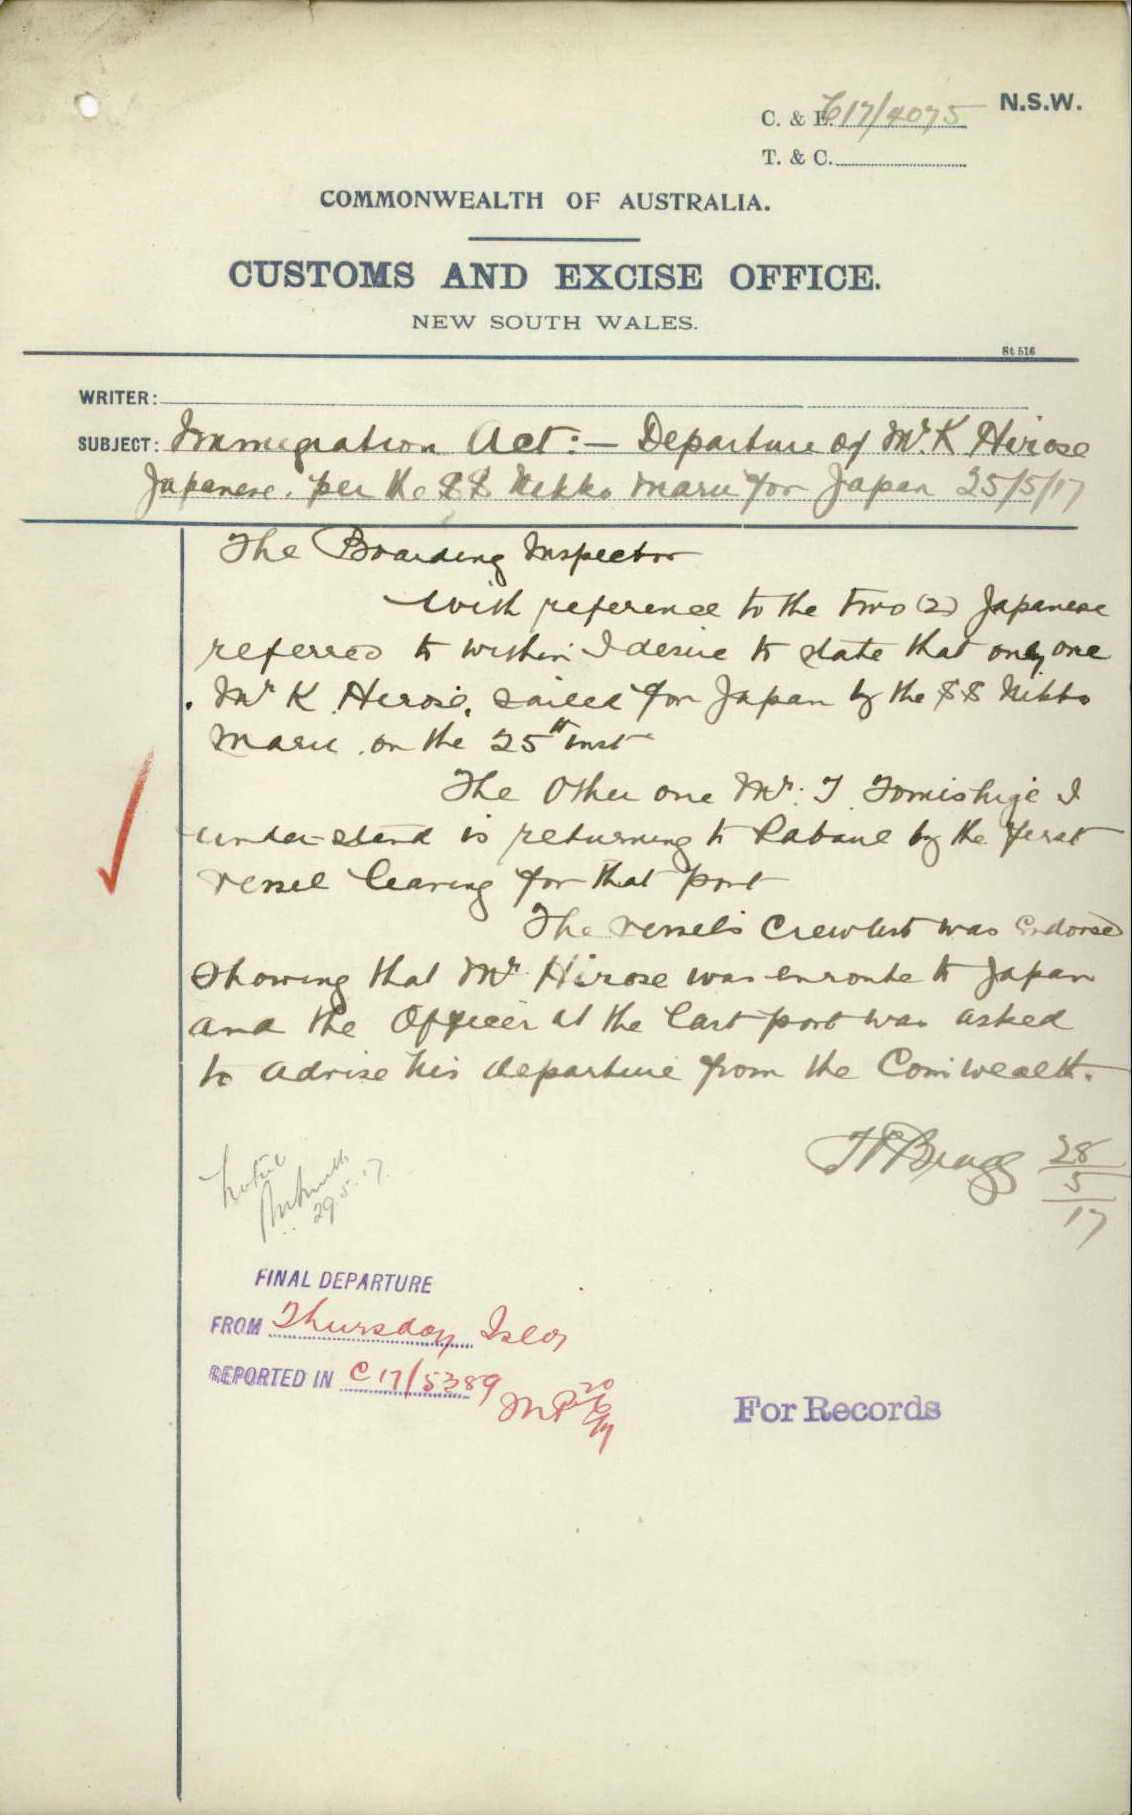 N.S.W.
C. & E. C17/4075
T. & C.
COMMONWEALTH OF AUSTRALIA.
CUSTOMS AND EXCISE OFFICE.
NEW SOUTH WALES.
St. 516
WRITER:
SUBJECT: Immigration Act:— Departure of Mr. K Hirose
Japanese. per the SS Nikko Maru for Japan 25/5/17
The Boarding Inspector
With reference to the two (2) Japanese
referred to within I desire to state that only one
Mr K Hirose, sailed for Japan by the SS Nikko
Maru on the 25th inst
The Other one Mr. T Tomishige I
under-stand is returning to Rabaul by the first
vessel leaving for that port
The vessels Crewlist was Endorsed
showing that Mr Hirose was enroute to Japan
and the Officer at the last port was asked
to advise his departure from the Comwealth.
Bragg 28/5/17
Noted
29.5.17.
FINAL DEPARTURE
FROM Thursday Isld
REPORTED IN C17/5389
20/6/17
For Records